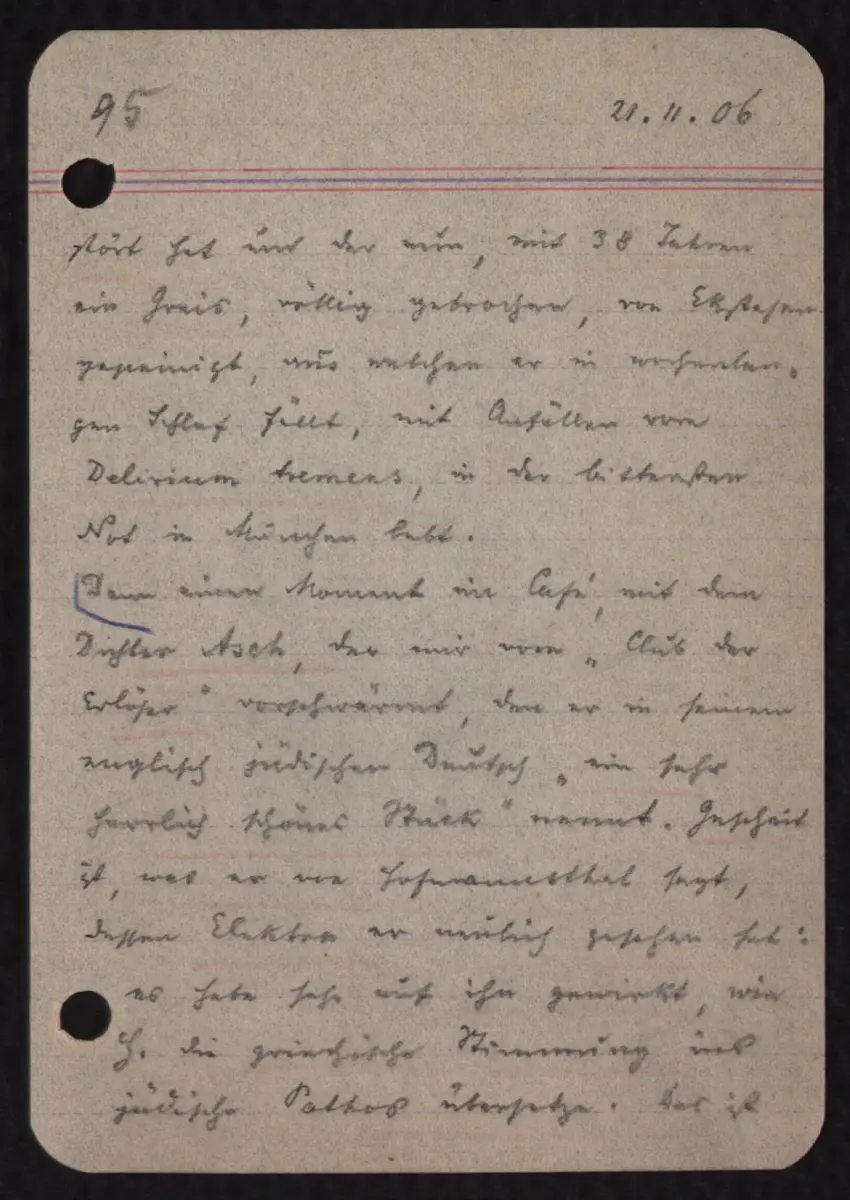 95 21.11.06
stört hat und der nun, mit 38 Jahren
ein Greis, völlig gebrochen, von Ekstasen
gepeinigt, aus welchen er in wochenlan-
gen Schlaf fällt, mit Anfällen vom
Delirium tremens, in der bittersten
Not in München lebt.
Dann einen Moment im Café, mit dem
Dichter Asch, der mir vom „Club der
Erlöser" vorschwärmt, den er in seinem
englisch jüdischen Deutsch „ein sehr
herrlich schönes Stück" nennt. Gescheit
ist, was er von Hofmannsthal sagt,
dessen Elektra er neulich gesehen hat:
es habe sehr auf ihn gewirkt, wie
H. die griechische Stimmung ins
jüdische Pathos übersetze. Das ist